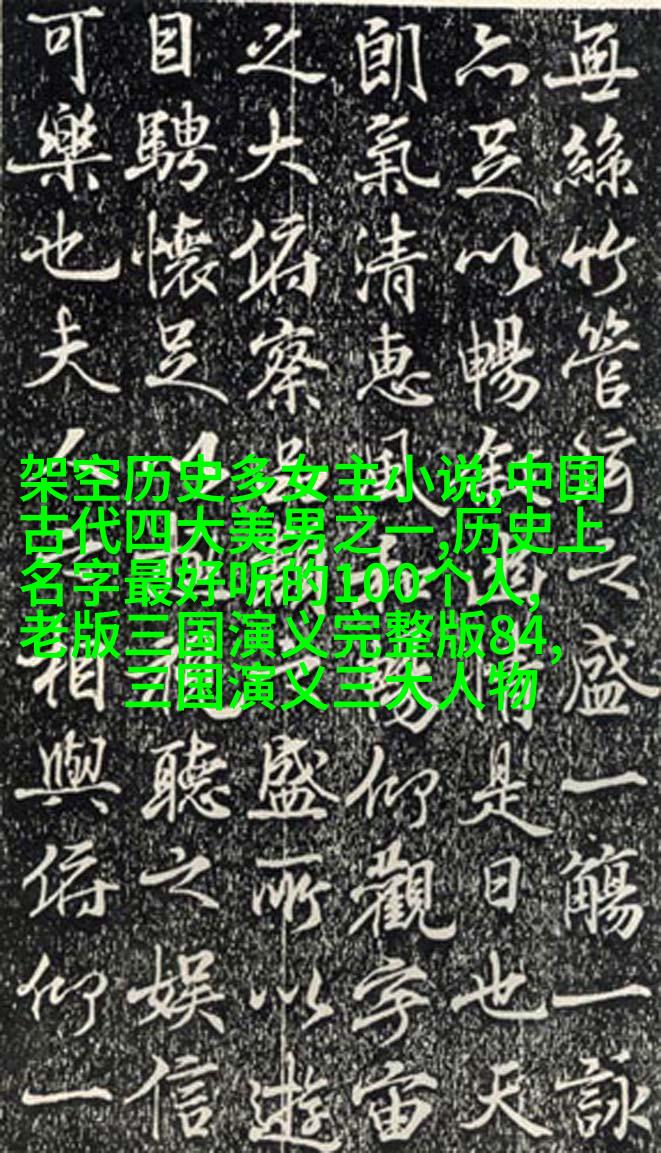 無絲竹管絃之盛一觴一詠
亦足以暢敘幽情是日也天
朗氣清惠風和暢仰觀宇宙
之大俯察品類之盛所以遊
目騁懷足以極視聽之娛信
可樂也夫人之相與俯仰一
架空历史多女主小说,中国
古代四大美男之一,历史上
名字最好听的100个人,
老版三国演义完整版84,
三国演义三大人物